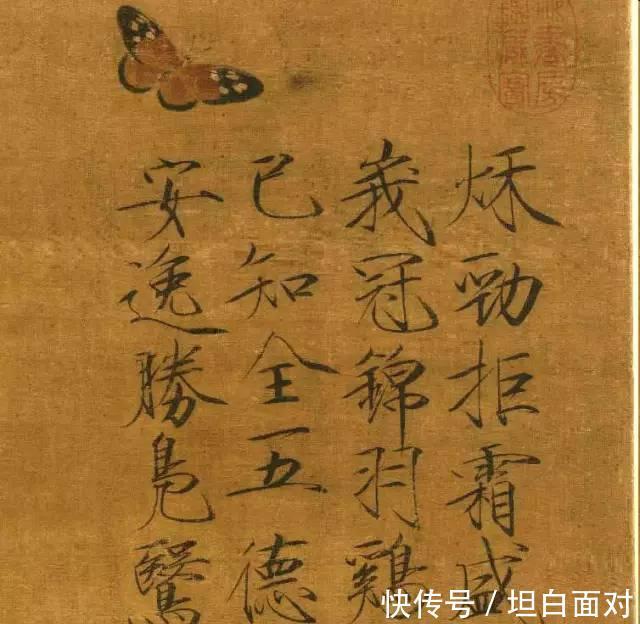 秌勁拒霜盛
峩冠錦羽鷄
已知全五德
安逸勝鳧鷖
快传号 / 坦白面对